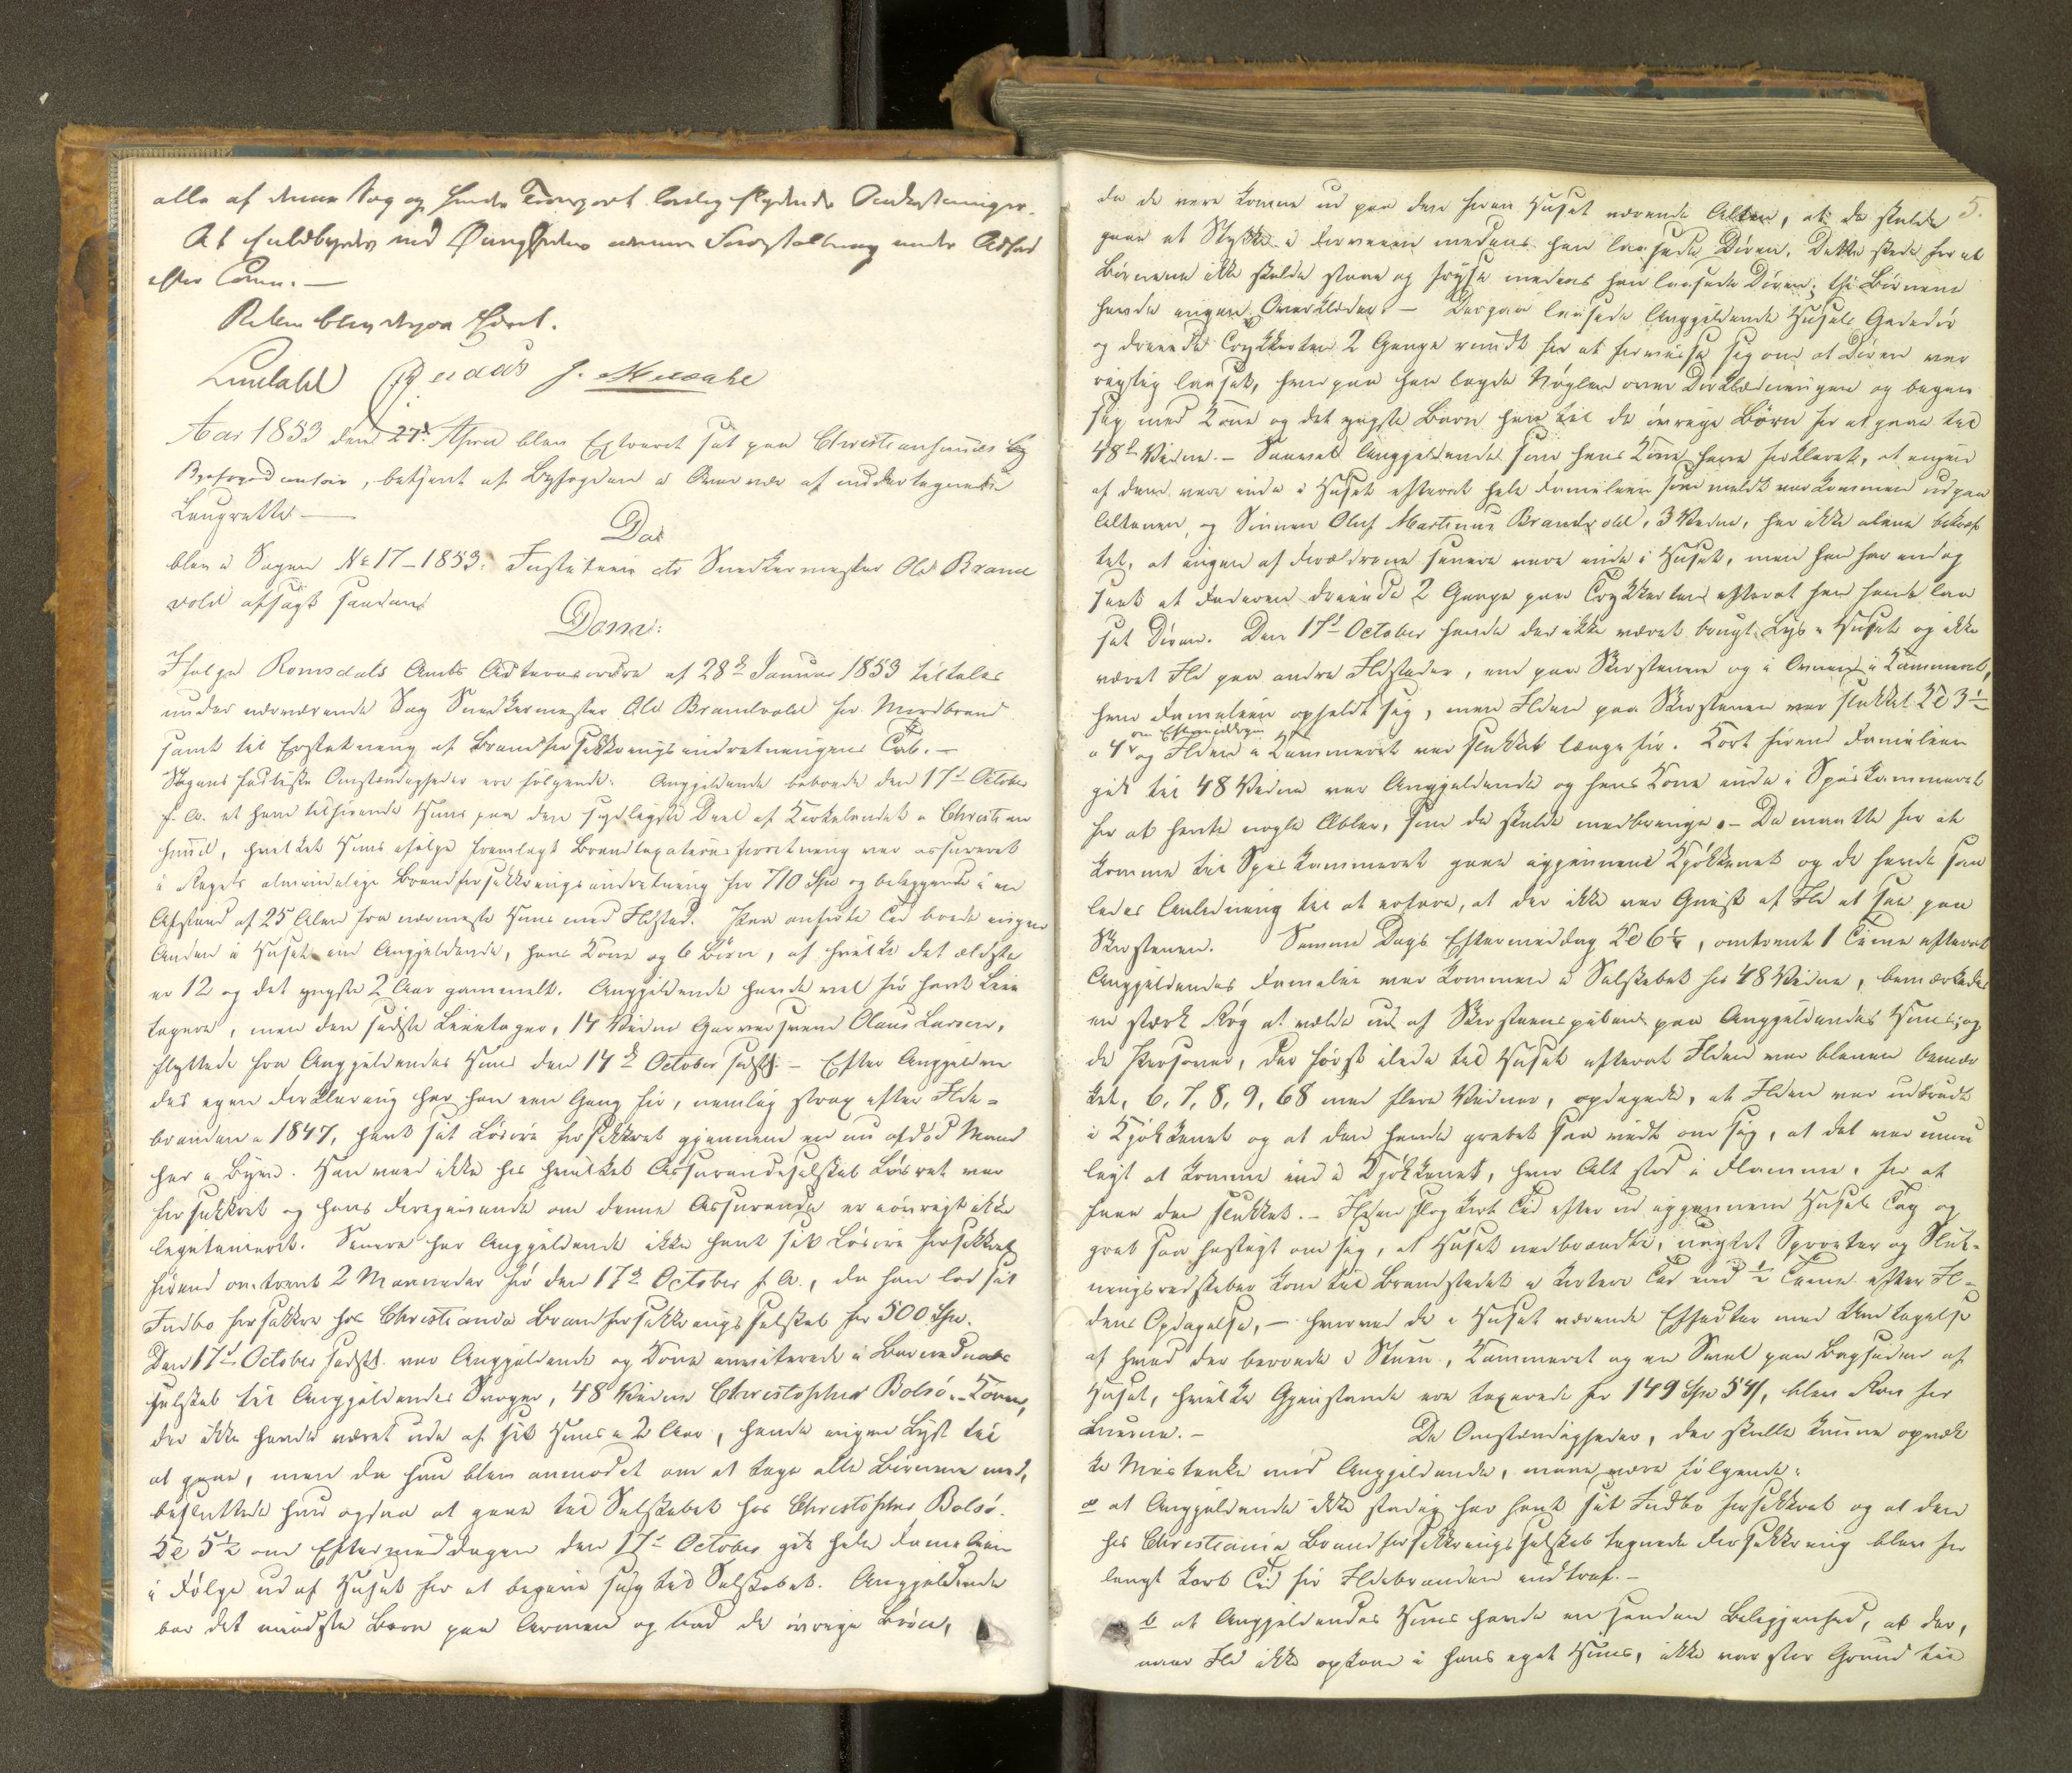 alle af denne Sag og hendes Transport lovlig flydende Omkostninger.
At fuldbyrdes ved Øvrighedens Foranstaltning under Adfærd
efter Loven. —
Retten blev derpaa hævet.
Lundahl
Aar 1853 den 27d April blev Extraret sat paa Christiansunds By
Byefogedcontoir, betjent af Byfogden i Overvær af undertegnede
Laugrettes —
Da
blev i Sagen No 17–1853: Justitien ctr Snedkermester Ole Brand
vold afsagt saadan
Dom:
Ifølge Romsdals Amts Actionsordre af 28d Januar 1853 tiltales
under nærværende Sag Snedkermester Ole Brandvold for Mordbrand
samt til Erstatning af Brandforsikkringsindretningens Tab. —
Sagens factiske Omstændigheder ere følgende: Angjeldende beboede den 17d October
f. A. et ham tilhørende Huus paa den sydligste Deel af Kirkelandet i Christian
sund, hvilket Huus ifølge fremlagt Brandtaxationsforretning var assureret
i Rigets almindelige Brandforsikkringsindretning for 710 Spd og beliggende i en
Afstand af 25 Alen fra nærmeste Huus med Ildsted. Paa anførte Tid boede ingen
Anden i Huset end Angjeldende, hans Kone og 6 Børn, af hvilke det ældste
er 12 og det yngste 2 Aar gammelt. Angjeldende havde vel før havt Leie
tagere, men den sidste Leietager, 14 Vidne Garversvend Olaus Larsen,
flyttede fra Angjeldendes Huus den 14d October sidstl. — Efter Angjelden
des egen Forklaring har han een Gang før, nemlig strax efter Ilde-
branden i 1847, havt sit Løsøre forsikkret gjennem en nu afdød Mand
her i Byen. Han veed ikke hos hvilket Assuranceselskab Løsøret var
forsikkret og hans Foregivende om denne Assurance er iøvrigt ikke
legitimeret. Senere har Angjeldende ikke havt sit Løsøre forsikkret
førend omtrent 2 Maaneder før den 17d October f. A., da han lod sit
Indbo forsikkre hos Christiania Brandforsikkringsselskab for 500 Spd.
Den 17d October sidstl. var Angjeldende og Kone inviterede i Barnedaabs
selskab til Angjeldendes Svoger, 48 Vidne Christopher Bolsø. – Konen,
der ikke havde været ude af sit Huus i 2 Aar, havde ingen Lyst til
at gaae, men da hun blev anmodet om at tage alle Børnene med,
besluttede hun ogsaa at gaae til Selskabet hos Christopher Bolsø.
Kl 5½ om Eftermiddagen den 17d October gik hele Familien
i Følge ud af Huset for at begive sig til Selskabet. Angjeldende
bar det mindste Barn paa Armen og bad de øvrige Børn,
5.
da de vare komne ud paa den foran Huset værende Altan, at de skulde
gaae et Stykke i Forveien medens han laasede Døren. Dette skede for at
Børnene ikke skulde staae og fryse medens han laasede Døren; thi Børnene
havde ingen Overklæder. — Derpaa laasede Angjeldende Husets Gadedør
og dreiede Trykkerten 2 Gange rundt for at forvisse sig om at Døren var
rigtig laaset, hvorpaa han lagde Nøglen over Dørklædningen og begav
sig med Kone og det yngste Barn hen til de øvrige Børn for at gaae til
48de Vidne. — Saavel Angjeldende som hans Kone have forklaret, at ingen
af dem vare inde i Huset efterat hele Familien som meldt var kommen ud paa
Altanen, og Sønnen Oluf Martinus Brandvold, 3 Vidne, har ikke alene bekræf
tet, at ingen af Forældrene senere vare inde i Huset, men han har endog
seet at Faderen dreiede 2 Gange paa Trykkerten efterat han havde laa
set Døren. Den 17d October havde der ikke været brugt Lys i Huset og ikke
været Ild paa andre Ildsteder, end paa Skorstenen og i Ovnen i Kammeret,
hvor Familien opholdt sig, men Ilden paa Skorstenen var slukket Kl 3½
a 4 om Eftermiddagen og Ilden i Kammeret var slukket længe før. Kort førend Familien
gik til 48 Vidne var Angjeldende og hans Kone inde i Spiskammeret
for at hente nogle Æbler, som de skulde medbringe. — De maatte for at
komme til Spiskammeret gaae igjennem Kjøkkenet og de havde saa
ledes Anledning til at erfare, at der ikke var Gnist af Ild at see paa
Skorstenen. Samme Dags Eftermiddag Kl 6¼, omtrent 1 Time efterat
Angjeldendes Familie var kommen i Selskabet hos 48 Vidne, bemærkedes
en stærk Røg at vælde ud af Skorsteenspiben paa Angjeldendes Huus; og
de Personer, der først ilede til Huset efterat Ilden var bleven bemær
ket, 6, 7, 8, 9, 68 med flere Vidner, opdagede, at Ilden var udbrudt
i Kjøkkenet og at den havde grebet saa vidt om sig, at det var umu
ligt at komme ind i Kjøkkenet, hvor Alt stod i Flamme, for at
faae den slukket. — Ilden slog kort Tid efter ud igjennem Husets Tag og
greb saa hastigt om sig, at Huset nedbrændte, uagtet Sprøiter og Sluk-
ningsredskaber kom til Brandstedet i kortere Tid end ½ Time efter Il-
dens Opdagelse, — hvorved de i Huset værende Effecter med Undtagelse
af hvad der beroede i Stuen, Kammeret og en Sval paa Bagsiden af
Huset, hvilke Gjenstande ere taxerede for 149 Spd 54 s, blev Rov for
Luerne. — De Omstændigheder, der skulle kunne opvæk
ke Mistanke mod Angjeldende, maae være følgende:
a at Angjeldende ikke stadig har havt sit Indbo forsikkret og at den
hos Christiania Brandforsikkringsselskab tegnede Forsikkring blev for
langt kort Tid før Ildebranden indtraf. —
b at Angjeldendes Huus havde en saadan Beliggenhed, at der,
naar Ild ikke opkom i hans eget Huus, ikke var stor Grund til